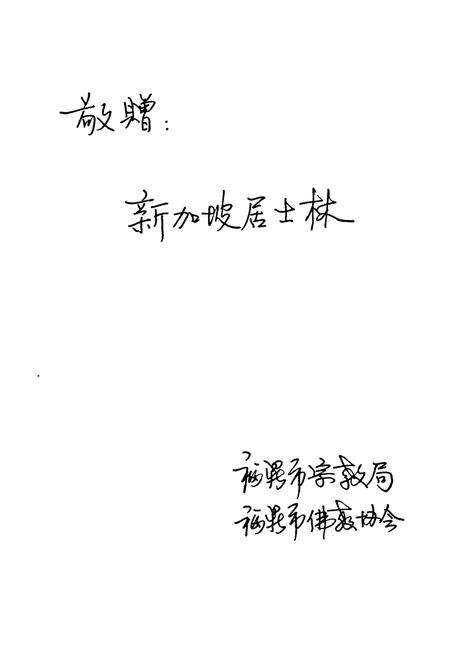 敬贈：
新加坡居士林
福鼎市宗教局
福鼎市佛教协会